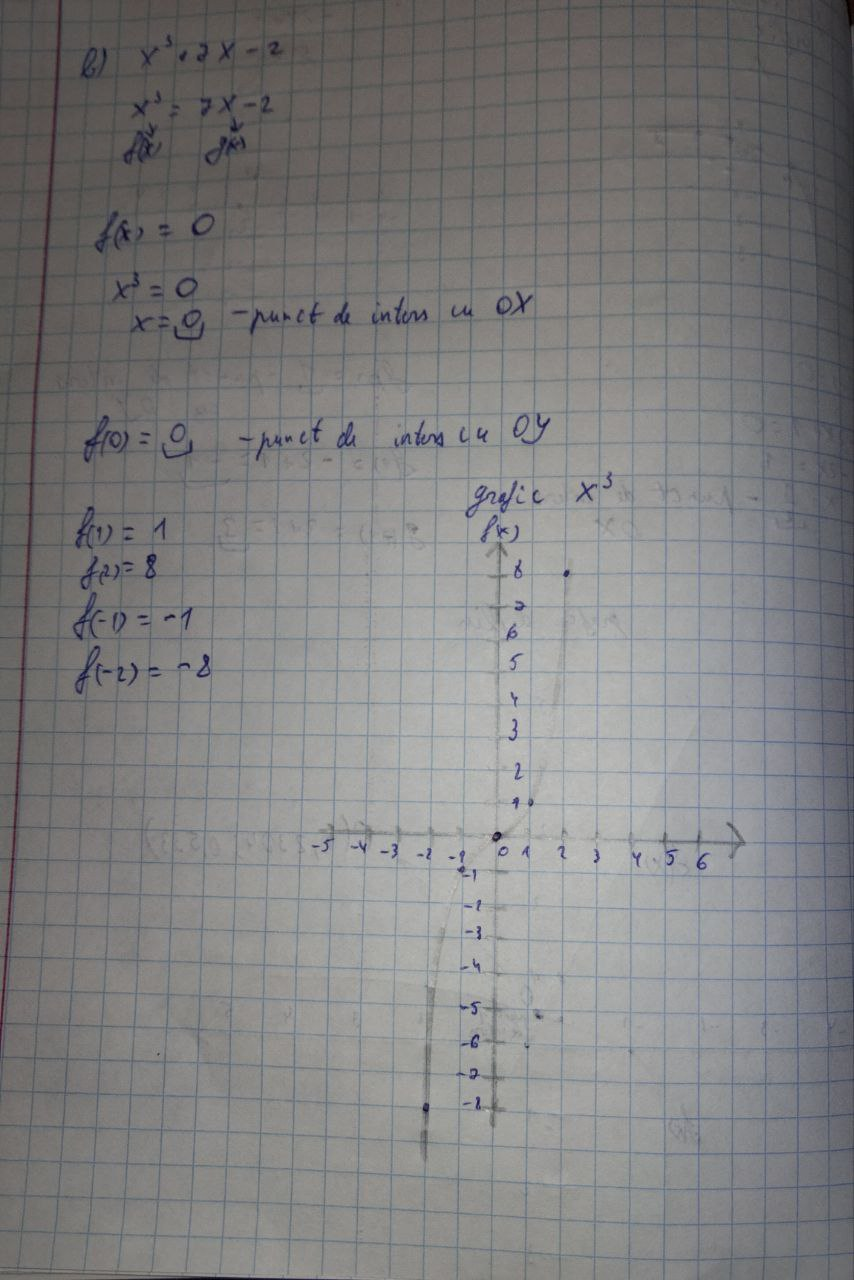 b) x³ + 7x - 2
x³ = 7x - 2
f(x) g(x)
f(x) = 0
x³ = 0
x = 0 - punct de inters cu OX
f(0) = 0 - punct de inters cu OY
grafic x³
f(x)
f(1) = 1
f(2) = 8
f(-1) = -1
f(-2) = -8
8
7
6
5
4
3
2
1
-5 -4 -3 -2 -1 0 1 2 3 4 5 6
-1
-2
-3
-4
-5
-6
-7
-8